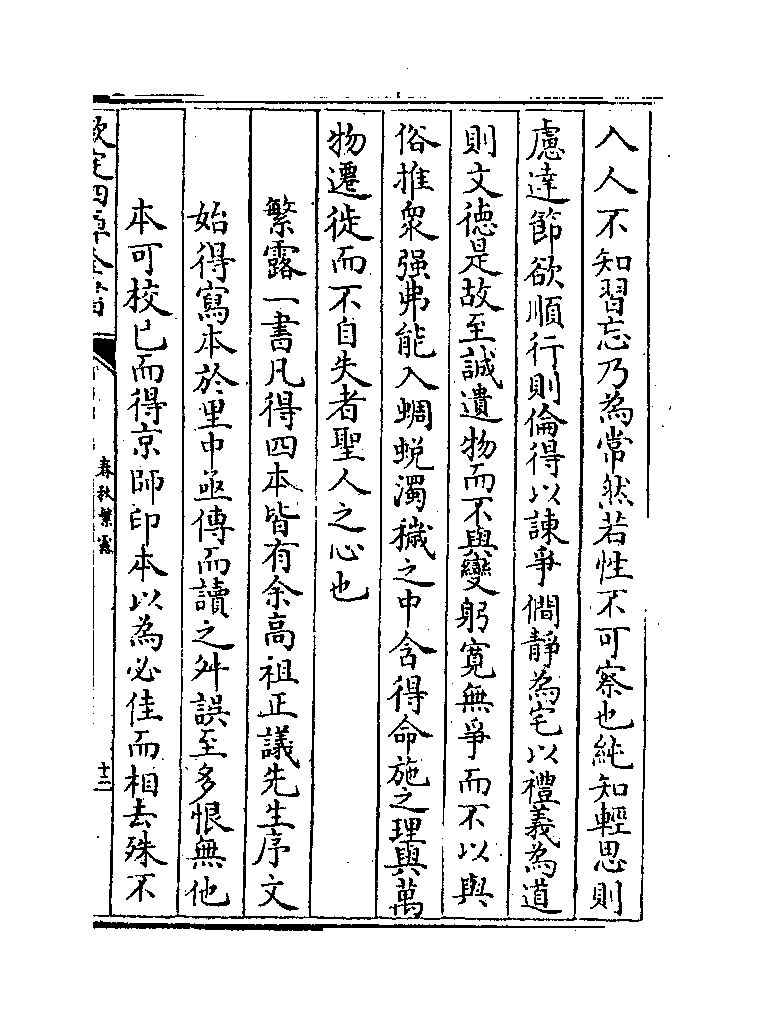 入人不知習忘乃為常然若性不可察也純知輕思則
慮達節欲順行則倫得以諫爭僩静為宅以禮義為道
則文徳是故至誠遺物而不與變躬寛無爭而不以與
俗推衆强弗能入蜩蜕濁穢之中含得命施之理與萬
物遷徙而不自失者聖人之心也
繁露一書凡得四本皆有余高祖正議先生序文
始得寫本於里中亟傳而讀之舛誤至多恨無他
本可校已而得京師印本以為必佳而相去殊不
欽定四庫全書
春秋繁露
十二